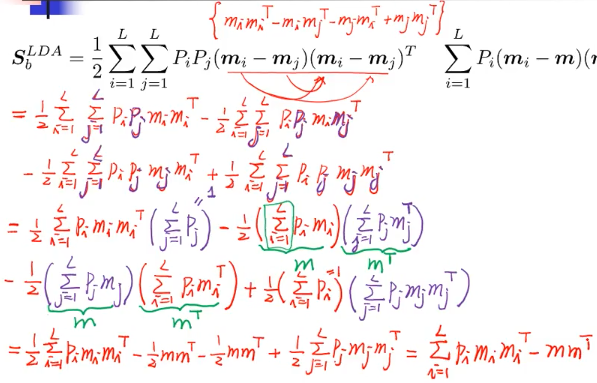 { mᵢmᵢᵀ − mᵢmⱼᵀ − mⱼmᵢᵀ + mⱼmⱼᵀ }
S_b^{LDA} = 1/2 ∑_{i=1}^{L} ∑_{j=1}^{L} PᵢPⱼ(mᵢ − mⱼ)(mᵢ − mⱼ)^T   ∑_{i=1}^{L} Pᵢ(mᵢ − m)(
= 1/2 ∑_{i=1}^{L} ∑_{j=1}^{L} Pᵢ Pⱼ mᵢ mᵢᵀ − 1/2 ∑_{i=1}^{L} ∑_{j=1}^{L} Pᵢ Pⱼ mᵢ mⱼᵀ
− 1/2 ∑_{i=1}^{L} ∑_{j=1}^{L} Pᵢ Pⱼ mⱼ mᵢᵀ + 1/2 ∑_{i=1}^{L} ∑_{j=1}^{L} Pᵢ Pⱼ mⱼ mⱼᵀ
= 1/2 ∑_{i=1}^{L} Pᵢ mᵢ mᵢᵀ ( ∑_{j=1}^{L} Pⱼ ) − 1/2 ( ∑_{i=1}^{L} Pᵢ mᵢ ) ( ∑_{j=1}^{L} Pⱼ mⱼᵀ )
= 1
m mᵀ
− 1/2 ( ∑_{j=1}^{L} Pⱼ mⱼ ) ( ∑_{i=1}^{L} Pᵢ mᵢᵀ ) + 1/2 ( ∑_{i=1}^{L} Pᵢ ) ( ∑_{j=1}^{L} Pⱼ mⱼ mⱼᵀ )
=1
m mᵀ
= 1/2 ∑_{i=1}^{L} Pᵢ mᵢ mᵢᵀ − 1/2 mmᵀ − 1/2 mmᵀ + 1/2 ∑_{j=1}^{L} Pⱼ mⱼ mⱼᵀ = ∑_{i=1}^{L} Pᵢ mᵢ mᵢᵀ − mmᵀ